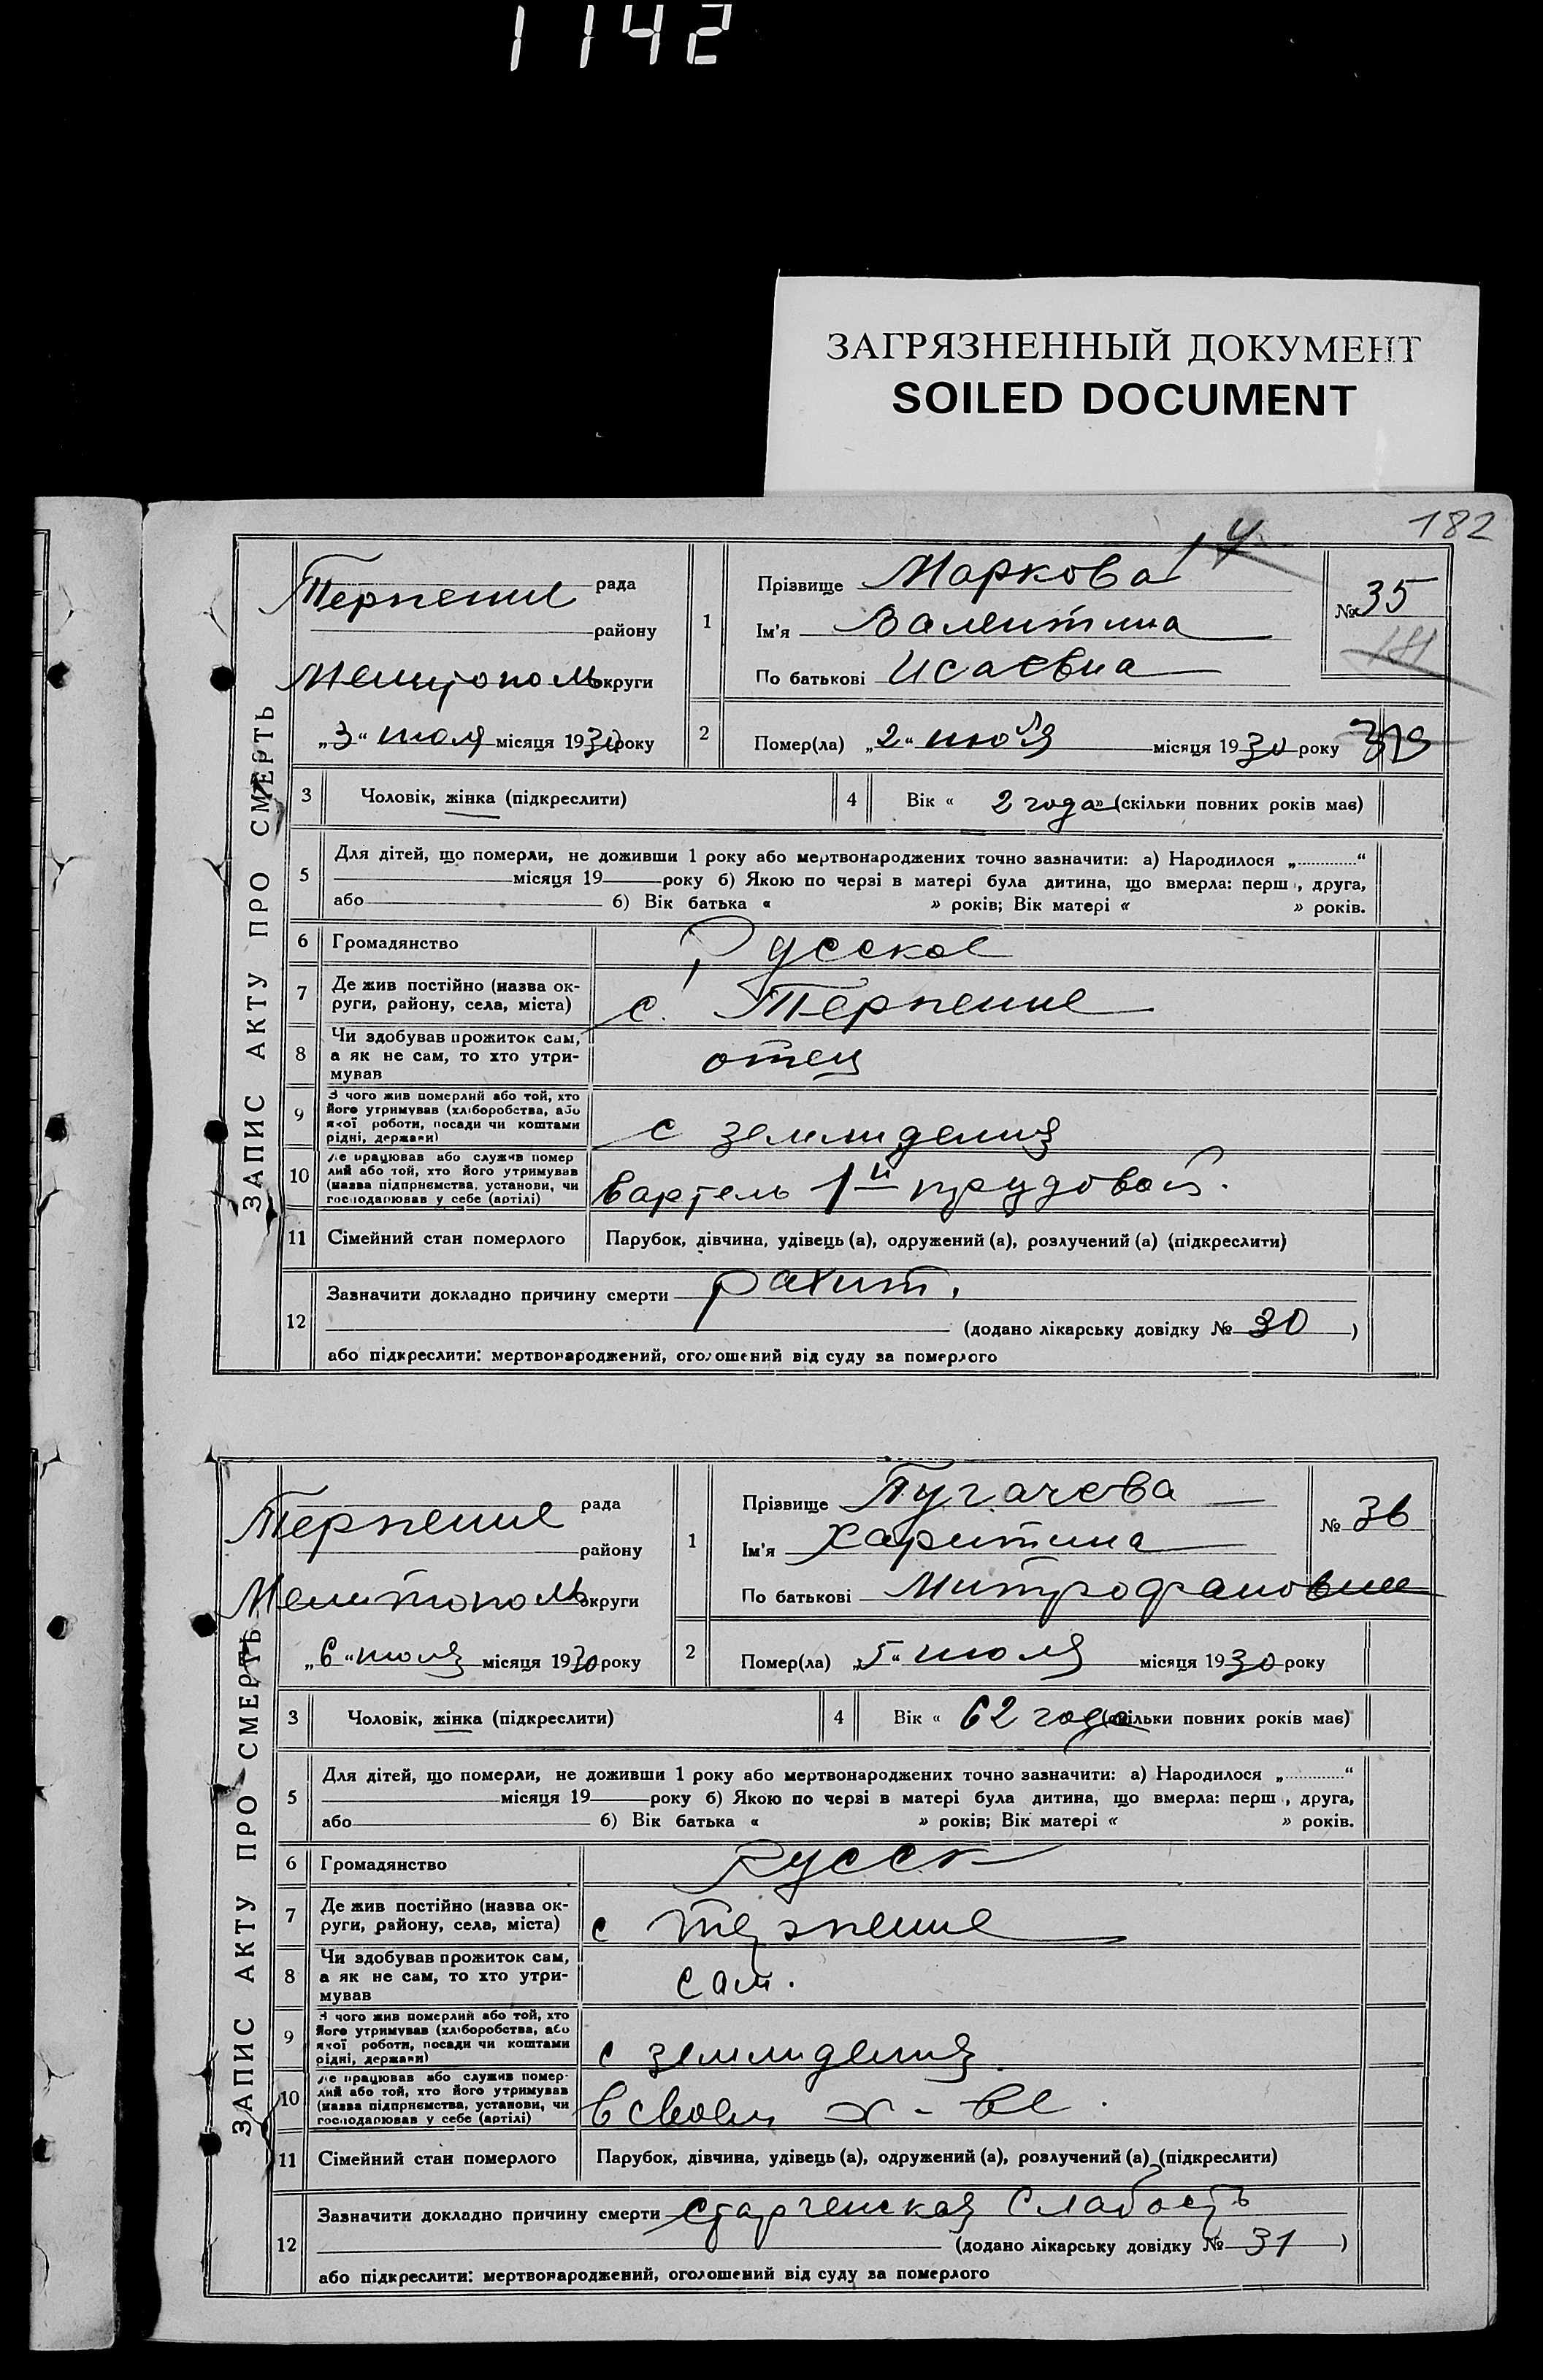 1142
ЗАГРЯЗНЕННЫЙ ДОКУМЕНТ
SOILED DOCUMENT
182
ЗАПИС АКТУ ПРО СМЕРТЬ
Терпение рада
району
Мелитополь округи
„3“ июля місяця 1930 року
1
Прізвище Маркова
Ім'я Валентина
По батькові Исаевна
№ 35
181
2
Помер(ла) „2“ июля місяця 1930 року
319
3 Чоловік, жінка (підкреслити)
4 Вік « 2 года » (скільки повних років має)
5 Для дітей, що померли, не доживши 1 року або мертвонароджених точно зазначити: а) Народилося „ “
місяця 19 року б) Якою по черзі в матері була дитина, що вмерла: перш , друга,
або б) Вік батька « » років; Вік матері « » років.
6 Громадянство Русское
7 Де жив постійно (назва ок-
руги, району, села, міста) с. Терпение
8 Чи здобував прожиток сам,
а як не сам, то хто утри-
мував отец
9 З чого жив померлий або той, хто
його утримував (хліборобства, або
якої роботи, посади чи коштами
рідні, держави) с земледелия
10 Де працював або служив помер
лий або той, хто його утримував
(назва підприємства, установи, чи
господарював у себе (артілі) в артель 1й трудовой.
11 Сімейний стан померлого Парубок, дівчина, удівець (а), одружений (а), розлучений (а) (підкреслити)
12 Зазначити докладно причину смерти рахит.
(додано лікарську довідку № 30 )
або підкреслити: мертвонароджений, оголошений від суду за померлого
ЗАПИС АКТУ ПРО СМЕРТЬ
Терпение рада
району
Мелитополь округи
„6“ июля місяця 1930 року
1
Прізвище Пугачева
Ім'я Харитина
По батькові Митрофановна
№ 36
2
Помер(ла) „5“ июля місяця 1930 року
3 Чоловік, жінка (підкреслити)
4 Вік « 62 года (скільки повних років має)
5 Для дітей, що померли, не доживши 1 року або мертвонароджених точно зазначити: а) Народилося „ “
місяця 19 року б) Якою по черзі в матері була дитина, що вмерла: перш , друга,
або б) Вік батька « » років; Вік матері « » років.
6 Громадянство Русск
7 Де жив постійно (назва ок-
руги, району, села, міста) с Терпение
8 Чи здобував прожиток сам,
а як не сам, то хто утри-
мував сам.
9 З чого жив померлий або той, хто
його утримував (хліборобства, або
якої роботи, посади чи коштами
рідні, держави) с земледелия
10 Де працював або служив помер-
лий або той, хто його утримував
(назва підприємства, установи, чи
господарював у себе (артілі) в своем х-ве.
11 Сімейний стан померлого Парубок, дівчина, удівець (а), одружений (а), розлучений (а) (підкреслити)
12 Зазначити докладно причину смерти старческая слабость
(додано лікарську довідку № 31 )
або підкреслити: мертвонароджений, оголошений від суду за померлого